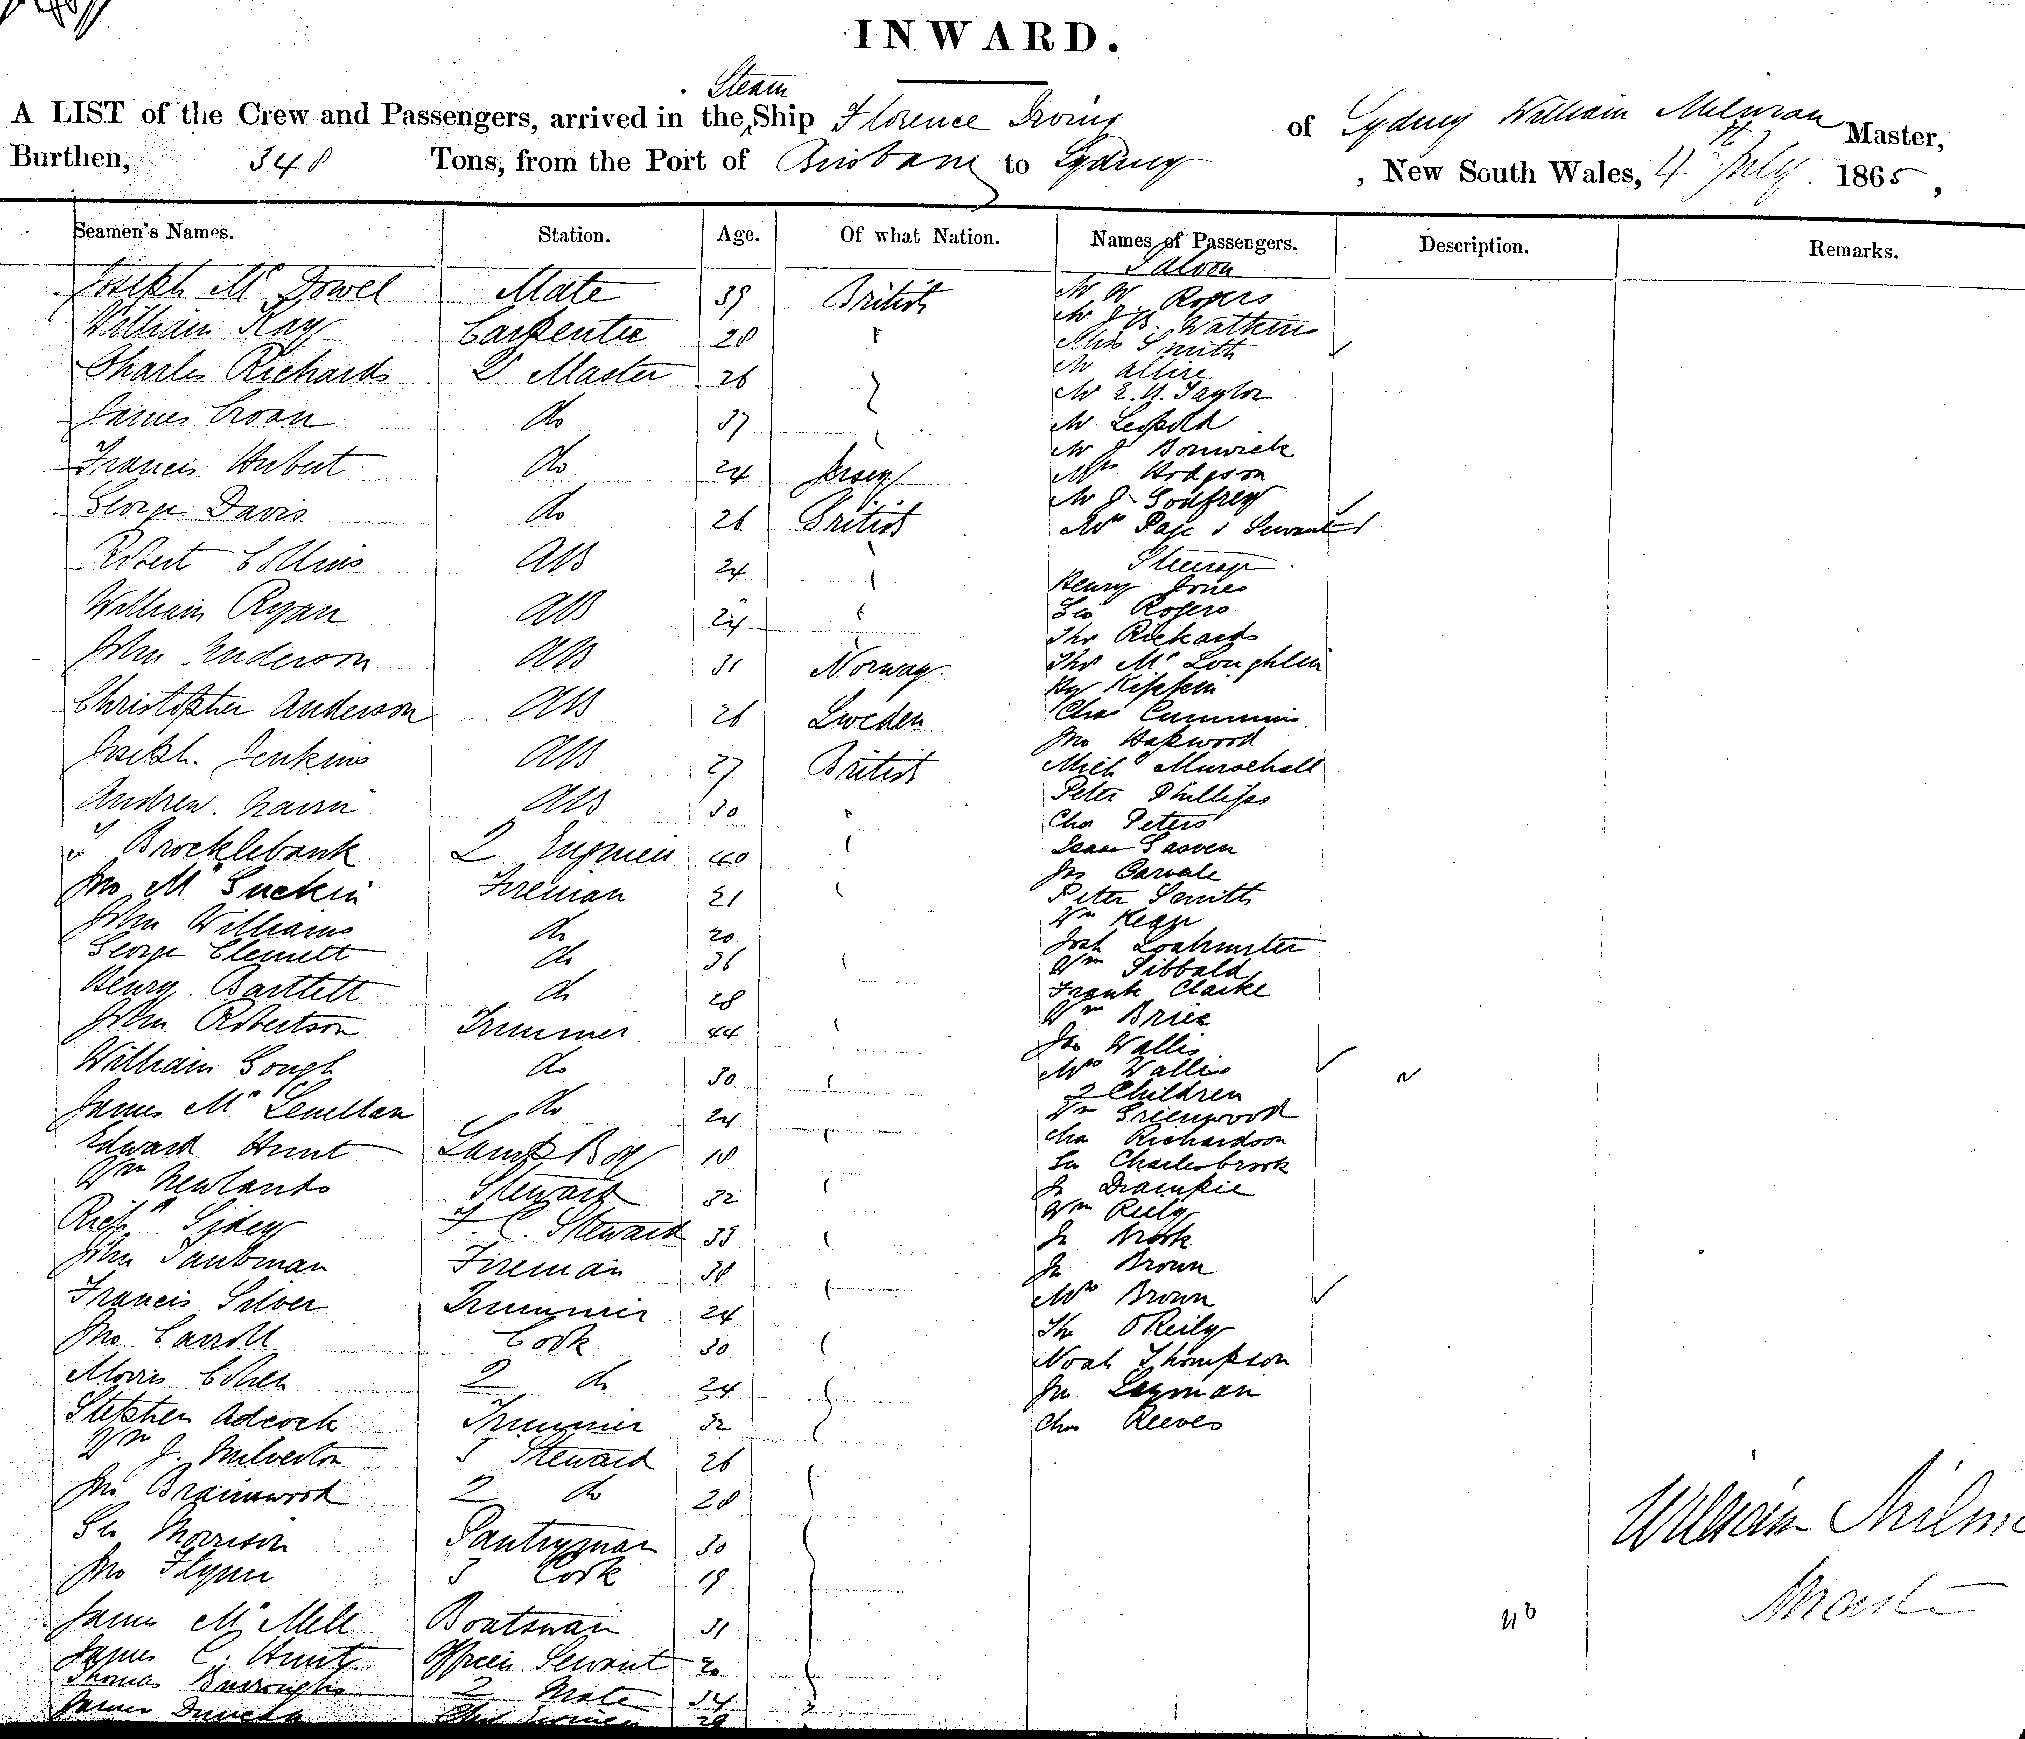 INWARD.
Steam
A LIST of the Crew and Passengers, arrived in the Ship Florence Irving of Sydney William Milman Master,
Burthen, 348 Tons, from the Port of Brisbane to Sydney, New South Wales, 4th July 1865,
Seamen's Names. Station. Age. Of what Nation. Names of Passengers. Description. Remarks.
Saloon
Joseph Mc Dowel Mate 39 British Mr W Rogers
William Kay Carpenter 28 " Mr J B. Watkins
Miss Smith
Charles Richards Q Master 26 Mr
Mr E. N. Taylor
James Croan do 37 Mr Leopold
Mr J Bonwick
Francis Hubert do 24 Jersey Mrs Hodgson
Mr J Godfrey
George Davis do 26 British Mrs Page & Servant 1
Steerage
Robert Collins AB 24 " Henry Jones
William Ryan AB 24 " Geo Rogers
Thos Richards
John Anderson AB 31 Norway Thos Mc Loughlin
Hy Kippin
Christopher Anderson AB 26 Sweden Chas Cummins
Jno Hapwood
Joseph Jenkins AB 27 British Michl Murschell
Andrew Nairn AB 30 " Peter Phillips
Chas Peters
Brocklebank 2 Engineer 40 " Isaac Sasven
Jno Mc Guckin Fireman 21 " Jas Carvale
Peter Smith
John Williams do 20 Wm Kegge
George Clemett do 36 " Josh
Wm Sibbald
Henry Bartlett do 28 Frank Clarke
John Robertson Trimmer 44 " Wm Brice
Jas Wallis
William Gough do 30 " Mrs Wallis
2 Children
James Mc Lenellan do 24 Wm Greenwood
Chas Richardson
Edward Hunt Lamp Boy 18 " Geo Charlesbrook
Wm Newlands Steward 32 " Jn Drampie
Wm Reily
Richd Sidey F. C. Steward 33 " Jn Brook
John Taubman Fireman 38 " Jn Brown
Francis Silver Trimmer 24 Mrs Brown
Jno Carroll Cook 30 " Thos O'Reily
Noah Thompson
Morris Cohen 2 do 24 " Jno Layman
Stephen Adcock Trimmer 32 Chas Reeves
Wm J. Milverton S Steward 26
Jno Brainwood 2 do 28
William Milman
Geo Morrison Pantryman 30
Jno Flynn 3 Cook 19
Master
James Mc Mell Boatswain 31 48
James C. Hunt Officers Servant 20
Thomas Burroughs 2 Mate 34
James 29